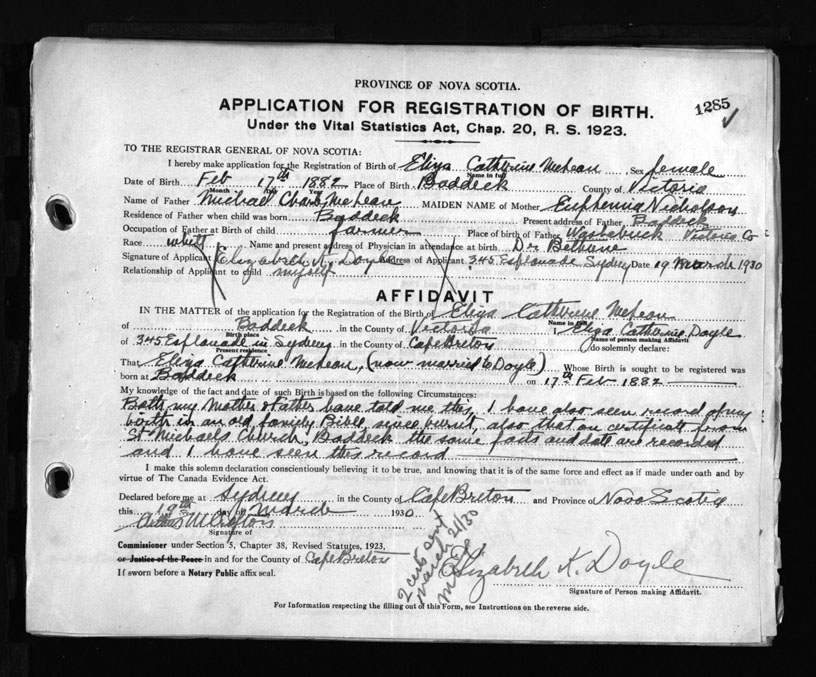 PROVINCE OF NOVA SCOTIA.
1285
APPLICATION FOR REGISTRATION OF BIRTH.
Under the Vital Statistics Act, Chap. 20, R. S. 1923.
TO THE REGISTRAR GENERAL OF NOVA SCOTIA:
I hereby make application for the Registration of Birth of Eliza Catherine McLean Sex female
Name in full
Date of Birth Feb 17th 1882 Place of Birth Baddeck County of Victoria
Month Day Year
Name of Father Michael Charles McLean MAIDEN NAME of Mother Euphemia Nicholson
Residence of Father when child was born Baddeck Present address of Father Baddeck
Occupation of Father at Birth of child farmer Place of birth of Father Washabuck Victoria Co
Race white Name and present address of Physician in attendance at birth Dr Bethune
Signature of Applicant Elizabeth K. Doyle Address of Applicant 345 Esplanade Sydney Date 19 March 1930
Relationship of Applicant to child myself
AFFIDAVIT
IN THE MATTER of the application for the Registration of the Birth of Eliza Catherine McLean
Name in full
of Baddeck in the County of Victoria I, Eliza Catherine Doyle
Birth place Name of person making Affidavit
of 345 Esplanade in Sydney in the County of Cape Breton do solemnly declare:
Present residence
That Eliza Catherine McLean, (now married to Doyle) Whose Birth is sought to be registered was
born at Baddeck on 17th Feb 1882
My knowledge of the fact and date of such Birth is based on the following Circumstances:
Both my Mother & Father have told me this, I have also seen record of my
birth in an old family Bible, since burnt, also that on certificate from
St Michaels Church, Baddeck the same facts and date are recorded
and I have seen this record
I make this solemn declaration conscientiously believing it to be true, and knowing that it is of the same force and effect as if made under oath and by
virtue of The Canada Evidence Act.
Declared before me at Sydney in the County of Cape Breton and Province of Nova Scotia
this 19th day of March 1930
Signature of
Commissioner under Section 5, Chapter 38, Revised Statutes, 1923,
or Justice of the Peace in and for the County of Cape Breton
If sworn before a Notary Public affix seal.
2 certs sent
March 21/30
Elizabeth K. Doyle
Signature of Person making Affidavit.
For Information respecting the filling out of this Form, see Instructions on the reverse side.